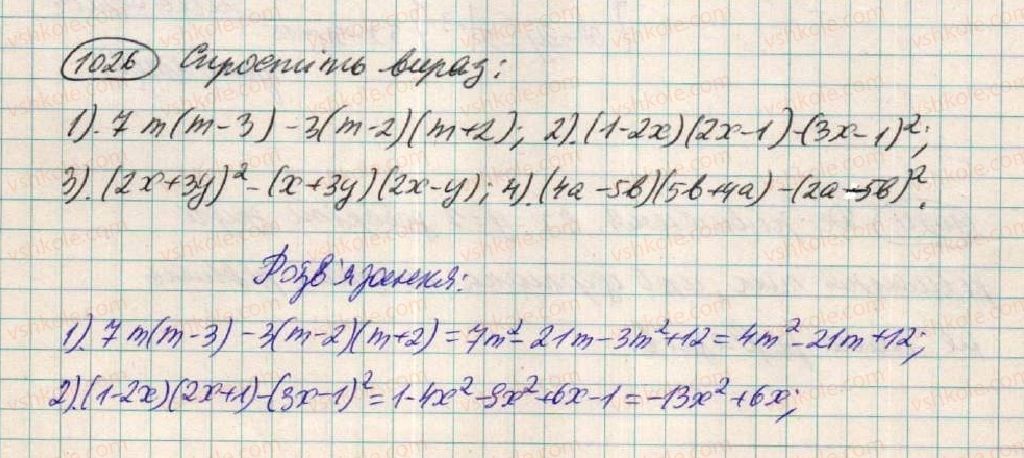 1026 Спростіть вираз:
1). 7m(m-3)-3(m-2)(m+2); 2). (1-2x)(2x-1)-(3x-1)²;
3). (2x+3y)²-(x+3y)(2x-y); 4). (4a-5b)(5b+4a)-(2a-5b)².
Розв'язання:
1). 7m(m-3)-3(m-2)(m+2)=7m²-21m-3m²+12=4m²-21m+12;
2). (1-2x)(2x+1)-(3x-1)²=1-4x²-9x²+6x-1=-13x²+6x;